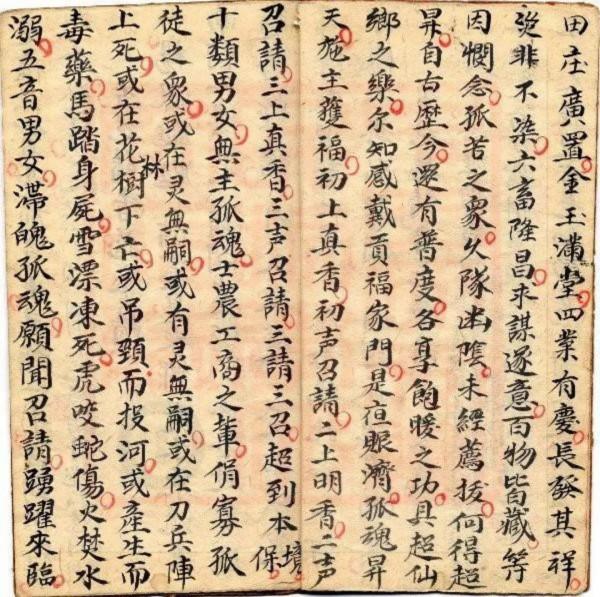 田庄廣置金玉滿堂四業有慶長發其祥
災非不染六畜隆昌求謀遂意百物皆藏等
因憫念孤苦之衆久隊幽陰未經薦拔何得超
昇自古歷今還有普度各享飽暖之功具超仙
鄉之樂尔知感戴貢福家門是亘賑濟孤魂昇
天施主獲福初上真香初声召請二上明香二声
召請三上真香三声召請三請三召超到本境保
十類男女無主孤魂士農工商之輩佴寡孤
徒之衆或在灵無嗣或有灵無嗣或在刀兵陣
上死或在花樹林下亡或吊頸而投河或產生而
毒藥馬踏身屍雪漂凍死虎咬蛇傷火焚水
溺五音男女滯魄孤魂願聞召請踴躍來臨